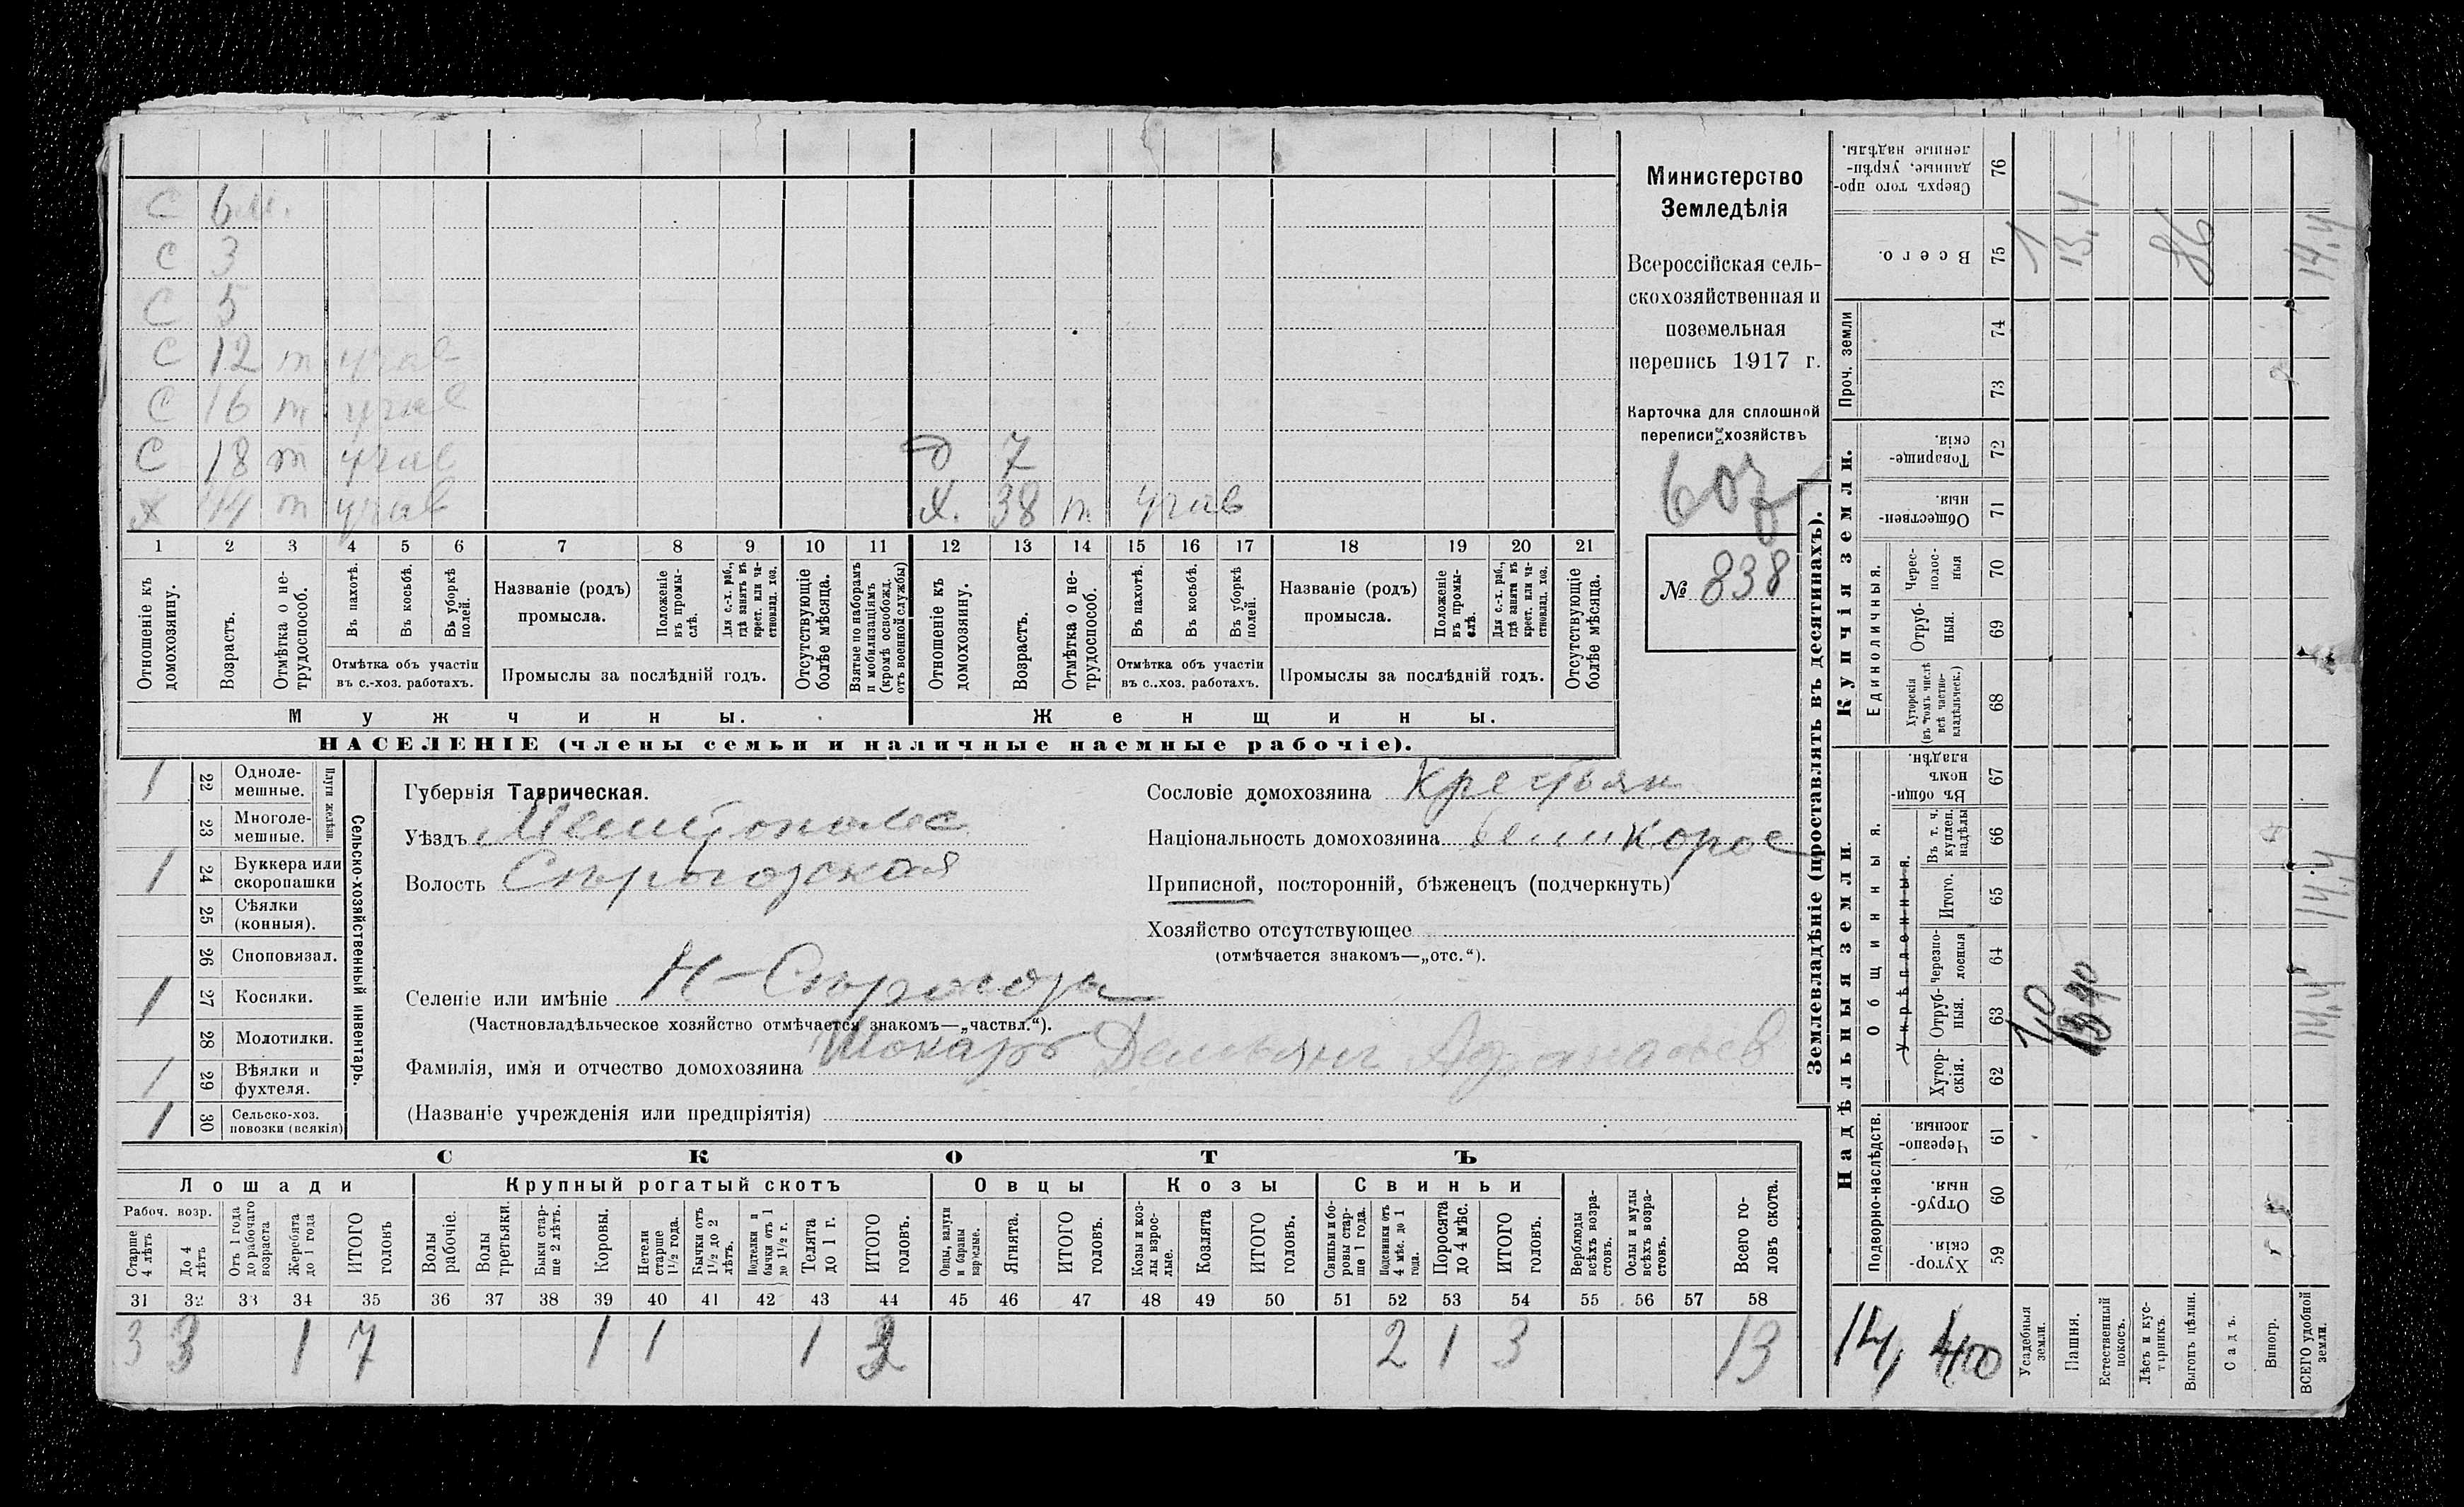 С 6 м.
С 3
С 5
С 12 т учав
С 16 т учав
С 18 т учав д 7
Х 44 т учав Х. 38 т. учав
1 2 3 4 5 6 7 8 9 10 11 12 13 14 15 16 17 18 19 20 21
Отношеніе къ домохозяину.
Возрастъ.
Отмѣтка о не-трудоспособ.
Въ пахотѣ.
Въ косьбѣ.
Въ уборкѣ полей.
Отмѣтка объ участіи въ с.-хоз. работахъ.
Названіе (родъ) промысла.
Положеніе въ промы-слѣ.
Для с.-х. раб., гдѣ занятъ въ крест. или ча-стновлад. хоз.
Промыслы за послѣдній годъ.
Отсутствующіе болѣе мѣсяца.
Взятые по наборамъ и мобилизаціямъ (кромѣ освобожд. отъ военной службы)
Отношеніе къ домохозяину.
Возрастъ.
Отмѣтка о не-трудоспособ.
Въ пахотѣ.
Въ косьбѣ.
Въ уборкѣ полей.
Отмѣтка объ участіи въ с..хоз. работахъ.
Названіе (родъ) промысла.
Положеніе въ промы-слѣ.
Для с.-х. раб., гдѣ занята въ крест. или ча-стновлад. хоз.
Промыслы за послѣдній годъ.
Отсутствующіе болѣе мѣсяца.
Мужчины. Женщины.
НАСЕЛЕНІЕ (члены семьи и наличные наемные рабочіе).
Министерство
Земледѣлія
Всероссійская сель-
скохозяйственная и
поземельная
перепись 1917 г.
Карточка для сплошной
переписи хозяйствъ
607
№ 838
Сельско-хозяйственный инвентарь.
Плуги желѣзн.
1 22 Одноле-мешные.
23 Многоле-мешные.
1 24 Буккера или скоропашки
25 Сѣялки (конныя).
26 Сноповязал.
1 27 Косилки.
28 Молотилки.
1 29 Вѣялки и фухтеля.
1 30 Сельско-хоз. повозки (всякія)
Губернія Таврическая.
Уѣздъ Мелитополс
Волость Сѣрогозская
Селеніе или имѣніе Н-Сѣрогозы
(Частновладѣльческое хозяйство отмѣчается знакомъ—„частвл.“).
Фамилія, имя и отчество домохозяина Шокарь Демьянъ Афанасьев
(Названіе учрежденія или предпріятія)
Сословіе домохозяина Крестьян
Національность домохозяина великорос
Приписной, посторонній, бѣженецъ (подчеркнуть)
Хозяйство отсутствующее
(отмѣчается знакомъ—„отс.“).
СКОТЪ
Лошади Крупный рогатый скотъ Овцы Козы Свиньи
Рабоч. возр.
Старше 4 лѣтъ
До 4 лѣтъ
Отъ 1 года до рабочаго возраста
Жеребята до 1 года
ИТОГО головъ
Волы рабочіе.
Волы третьяки.
Быки стар-ше 2 лѣтъ.
Коровы.
Нетели старше 1½ года.
Бычки отъ 1½ до 2 лѣтъ.
Подтелки и бычки отъ 1 до 1½ г.
Телята до 1 г.
ИТОГО головъ.
Овцы, валухи и бараны взрослые.
Ягнята.
ИТОГО головъ.
Козы и коз-лы взрос-лые.
Козлята
ИТОГО головъ.
Свиньи и бо-ровы стар-ше 1 года.
Подсвинки отъ 4 мѣс. до 1 года.
Поросята до 4 мѣс.
ИТОГО головъ.
Верблюды всѣхъ возра-стовъ.
Ослы и мулы всѣхъ возра-стовъ.
Всего го-ловъ скота.
31 32 33 34 35 36 37 38 39 40 41 42 43 44 45 46 47 48 49 50 51 52 53 54 55 56 57 58
3 3 1 7 1 1 1 3 2 1 3 13
Землевладѣніе (проставлять въ десятинахъ).
Купчія земли.
Надѣльныя земли.
Проч. земли
Единоличныя.
Общинныя.
Укрѣпленныя.
Подворно-наслѣдств.
Сверхъ того про-данные, укрѣп-ленные надѣлы. 76
Всего. 75 1 13,4 86 14,4
74
73
Товарище-скія. 72
Обществен-ныя. 71
Черес-полос-ныя 70
Отруб-ныя. 69
Хуторскія (въ томъ числѣ всѣ частно-владѣльческ.) 68
Въ общин-номъ владѣн. 67
Въ т. ч. куплен. надѣлы 66
Итого. 65 14,4
Черезпо-лосныя 64
Отруб-ныя. 63 1,0 13,40 14,4
Хутор-скія. 62
Черезпо-лосныя. 61
Отруб-ныя. 60
Хутор-скія. 59
14, 400
Усадебныя земли.
Пашня.
Естественный покосъ.
Лѣсъ и кус-тарникъ.
Выгонъ цѣлин.
Садъ.
Виногр.
ВСЕГО удобной земли.